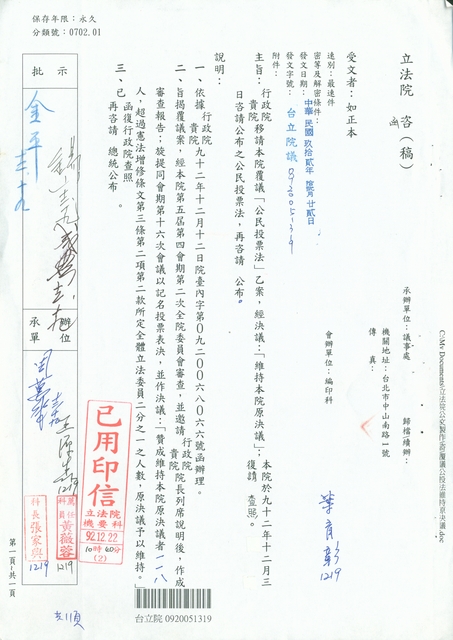 保存年限：永久
分類號：0702.01
立法院 咨(稿)
函
承辦單位：議事處
歸檔續辦：
機關地址：台北市中山南路一號
傳真：
受文者：如正本
會辦單位：編印科
速別：最速件
密等及解密條件：
發文日期：中華民國玖拾貳年 月廿貳日
發文字號：台立院議 0920051319
附件：
主旨：行政院 貴院移請本院覆議「公民投票法」乙案，經決議：「維持本院原決議」；本院於九十二年十二月三
日咨請公布之公民投票法，再咨請 公布。
復請 查照。
說明：
一、依據行政院 貴院九十二年十二月十二日院臺內字第0九二00六八0六六號函辦理。
二、旨揭覆議案，經本院第五屆第四會期第二次全院委員會審查，並邀請行政院 貴院院長列席說明後，作成
審查報告；旋提同會期第十六次會議以記名投票表決，並作決議：「贊成維持本院原決議者一一八
人，超過憲法增修條文第三條第二項第二款所定全體立法委員二分之一之人數，原決議予以維持。」
三、已函復行政院查照
再咨請 總統公布。
批示
承辦單位
已用印信
立法院
機要科
92.12.22
10時40分
(2)
黃薇蓉
1219
科長張家興
1219
1219
第一頁‧共一頁
台立院 0920051319
C:\My Documents\立法院公文製作\答覆議公投法維持原決議.doc